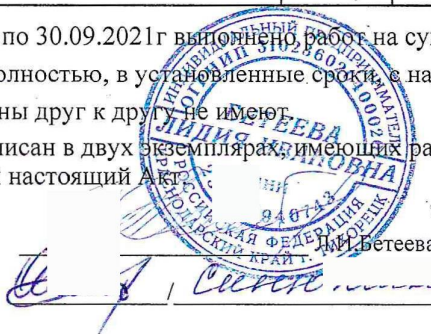 по 30.09.2021г выполнено работ на су
олностью, в установленные сроки, с на
ны друг к другу не имеют.
исан в двух экземплярах, имеющих ра
настоящий Акт
ИНДИВИДУАЛЬНЫЙ ПРЕДПРИНИМАТЕЛЬ
БЕТЕЕВА
ЛИДИЯ ИВАНОВНА
РОССИЙСКАЯ ФЕДЕРАЦИЯ
КРАСНОДАРСКИЙ КРАЙ Г. ТИХОРЕЦК
Л.И.Бетеева
/